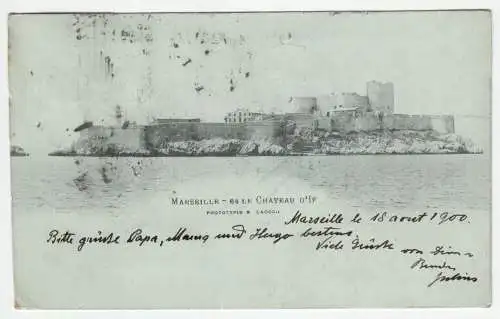 MARSEILLE - 64 LE CHATEAU D'IF
PHOTOTYPIE E LACOUR
Marseille le 18 août 1900.
Bitte grüße Papa, Mama und Hugo bestens.
Viele Grüße von Dein-
Bruder
Julius